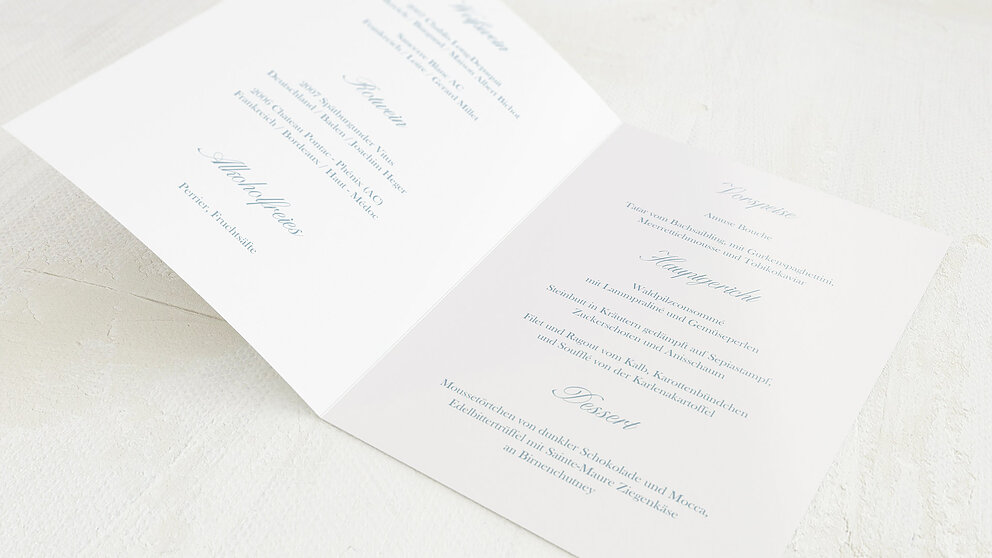 Weißwein
2007 Chablis Long-Depaquit
Burgund / Maison Albert Bichot
Sancerre Blanc AC
Frankreich / Loire / Gerard Millet
Rotwein
2007 Spätburgunder Vitus
Deutschland / Baden / Joachim Heger
2006 Chateau Pontac - Phénix (AC)
Frankreich / Bordeaux / Haut - Medoc
Alkoholfreies
Perrier, Fruchtsäfte
Vorspeise
Amuse Bouche
Tatar vom Bachsaibling, mit Gurkenspaghettini,
Meerrettichmousse und Tobikokaviar
Hauptgericht
Waldpilzconsommé
mit Lammpraliné und Gemüseperlen
Steinbutt in Kräutern gedämpft auf Sepiastampf,
Zuckerschoten und Anisschaum
Filet und Ragout vom Kalb, Karottenbündchen
und Soufflé von der Karlenakartoffel
Dessert
Moussetörtchen von dunkler Schokolade und Mocca,
Edelbittertrüffel mit Sainte-Maure Ziegenkäse
an Birnenchutney